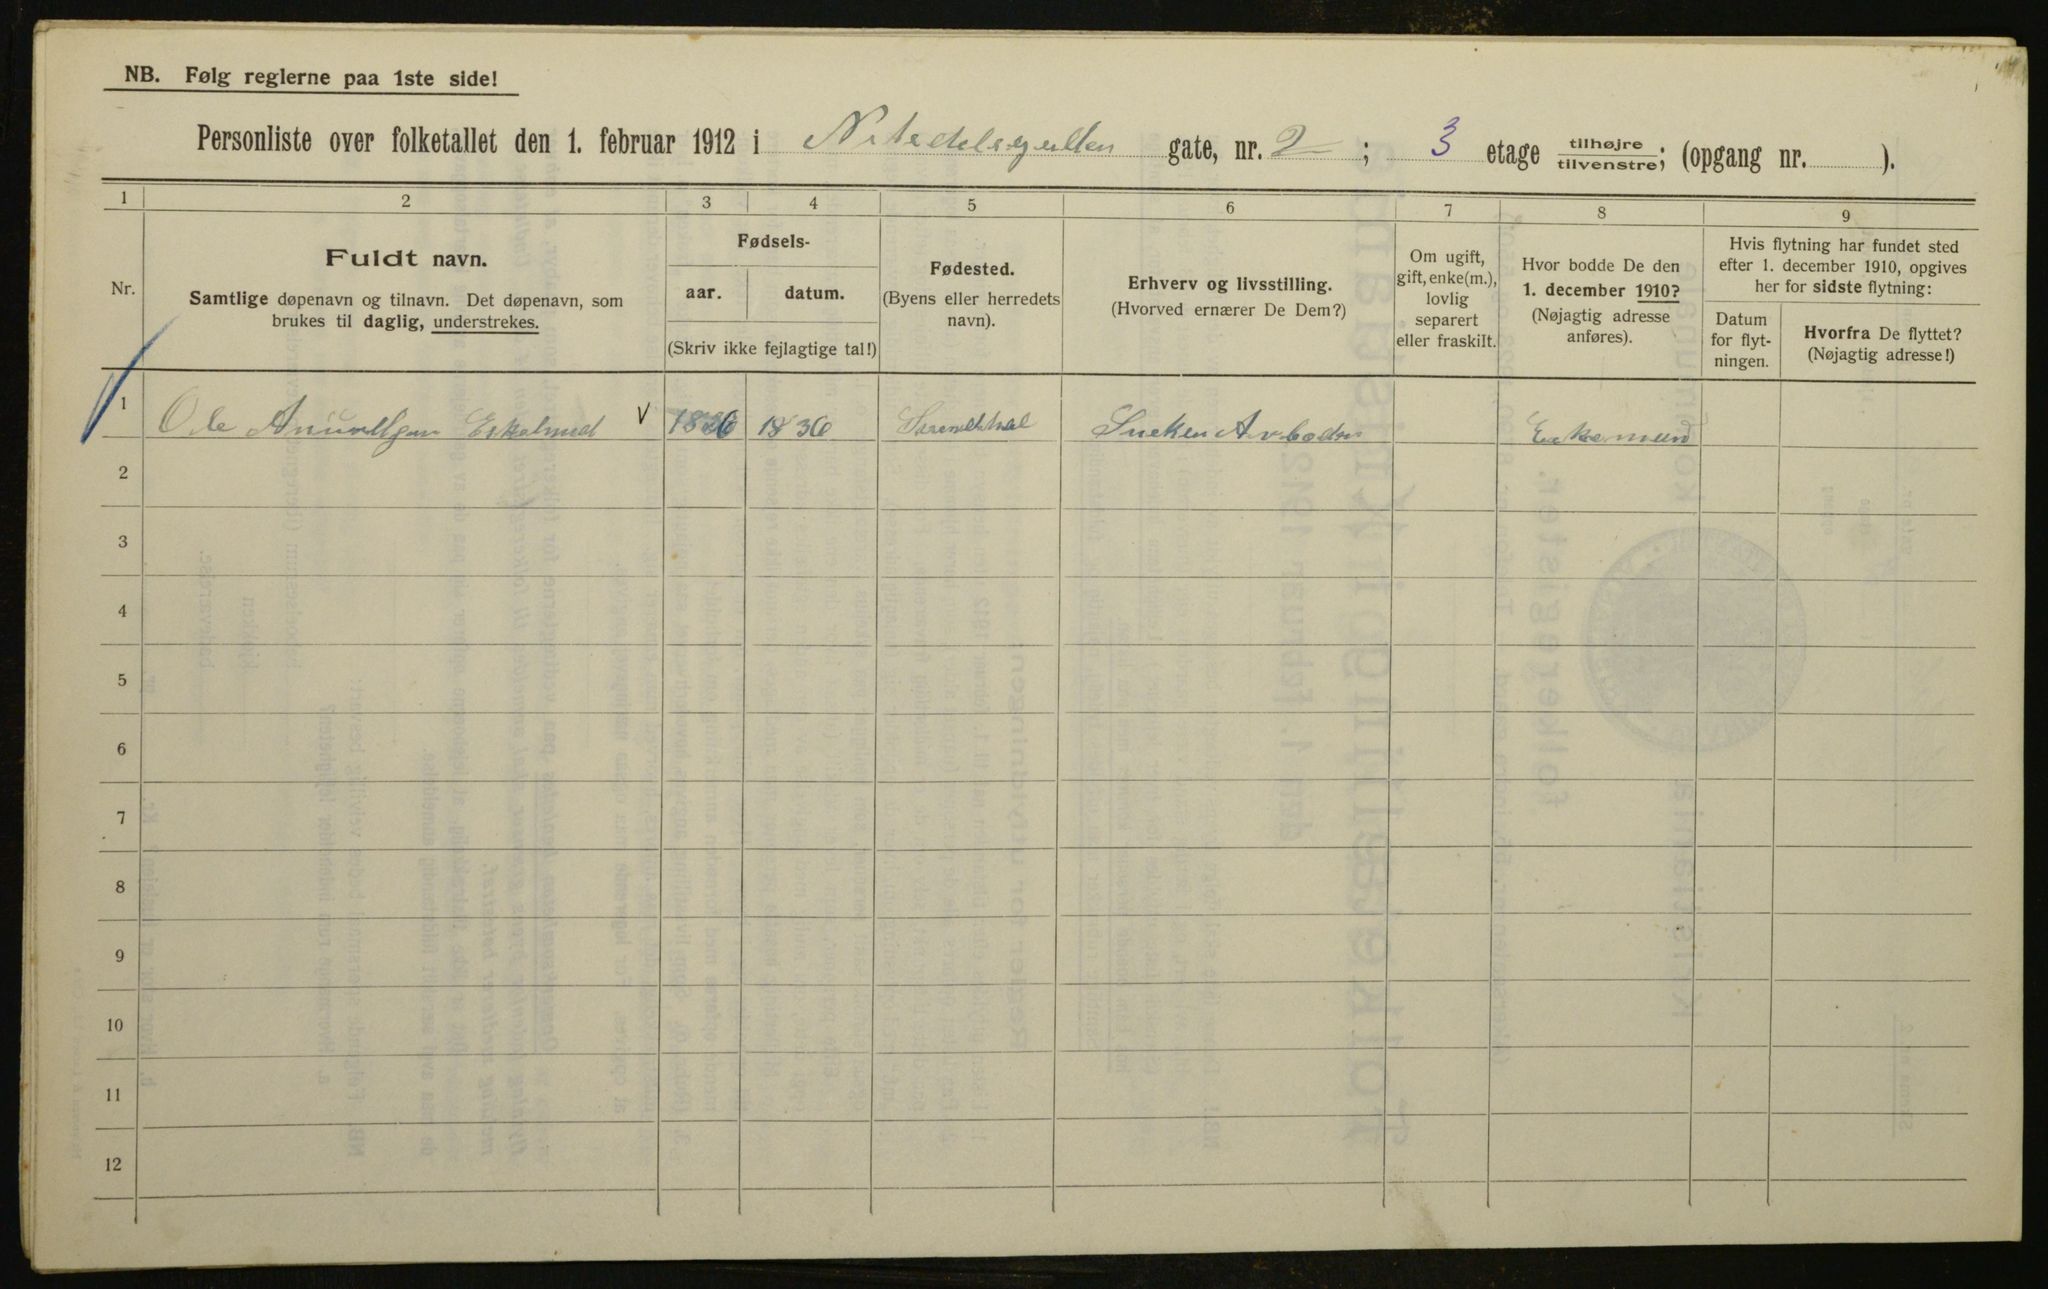 NB. Følg reglerne paa 1ste side!
Personliste over folketallet den 1. februar 1912 i Nitedalsgaden gate, nr. 2 ; 3 etage tilhøjre tilvenstre; (opgang nr. ).
1 2 3 4 5 6 7 8 9
Nr.
Fuldt navn.
Samtlige døpenavn og tilnavn. Det døpenavn, som
brukes til daglig, understrekes.
Fødsels-
aar. datum.
(Skriv ikke fejlagtige tal!)
Fødested.
(Byens eller herredets
navn).
Erhverv og livsstilling.
(Hvorved ernærer De Dem?)
Om ugift,
gift, enke(m.),
lovlig
separert
eller fraskilt.
Hvor bodde De den
1. december 1910?
(Nøjagtig adresse
anføres).
Hvis flytning har fundet sted
efter 1. december 1910, opgives
her for sidste flytning:
Datum
for flyt-
ningen.
Hvorfra De flyttet?
(Nøjagtig adresse!)
1 Ole V 1836
2
3
4
5
6
7
8
9
10
11
12